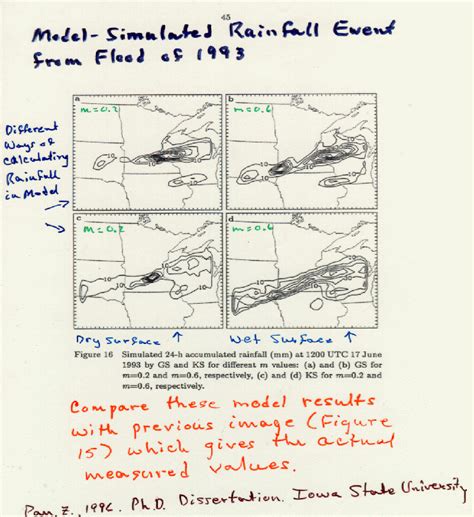 45
Model-Simulated Rainfall Event
from Flood of 1993
a
m=0.2
b
m=0.6
Different
Ways of
Calculating
Rainfall
in Model
10
10
10
10
10
c
m=0.2
d
m=0.6
10
10
10
Dry Surface ↑ Wet Surface ↑
Figure 16 Simulated 24-h accumulated rainfall (mm) at 1200 UTC 17 June
1993 by GS and KS for different m values: (a) and (b) GS for
m=0.2 and m=0.6, respectively, (c) and (d) KS for m=0.2 and
m=0.6, respectively.
Compare these model results
with previous image (Figure
15) which gives the actual
measured values.
Pan, Z., 1996. Ph.D. Dissertation. Iowa State University